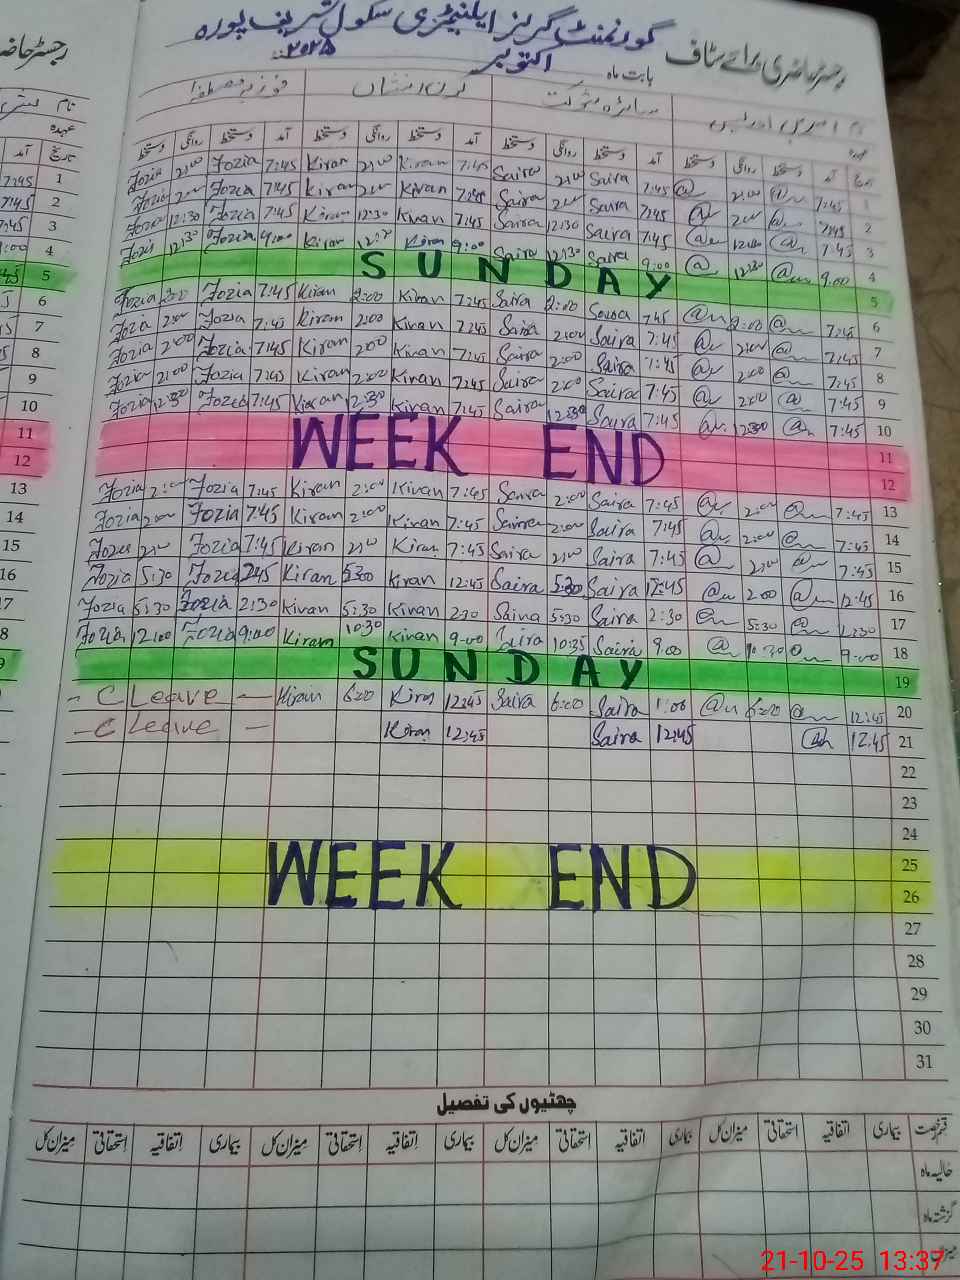 گورنمنٹ گرلز ایلیمنٹری سکول شریف پورہ
رجسٹر حاضری برائے سٹاف بابت ماہ اکتوبر 2025
فوزیہ مصطفیٰ
تاریخ آمد دستخط روانگی دستخط آمد دستخط روانگی دستخط آمد دستخط روانگی دستخط آمد دستخط روانگی دستخط
Fozia 2:00 Fozia 7:45 Kiran 2:00 Kiran 7:45 Saira 2:00 Saira 7:45 2:00 7:45 1
Fozia 2:00 Fozia 7:45 Kiran 2:00 Kiran 7:45 Saira 2:00 Saira 7:45 2:00 7:45 2
Fozia 12:30 Fozia 7:45 Kiran 12:30 Kiran 7:45 Saira 12:30 Saira 7:45 7:45 3
Fozia 12:30 Fozia 9:00 Kiran Kiran 9:00 Saira 12:30 Saira 9:00 12:30 9:00 4
SUNDAY 5
Fozia 2:00 Fozia 7:45 Kiran 2:00 Kiran 7:45 Saira 2:00 Saira 7:45 2:00 7:45 6
Fozia 2:00 Fozia 7:45 Kiran 2:00 Kiran 7:45 Saira 2:00 Saira 7:45 2:00 7:45 7
Fozia 2:00 Fozia 7:45 Kiran 2:00 Kiran 7:45 Saira 2:00 Saira 7:45 2:00 7:45 8
Fozia 2:00 Fozia 7:45 Kiran 2:00 Kiran 7:45 Saira 2:00 Saira 7:45 2:00 7:45 9
Fozia 12:30 Fozia 7:45 Kiran 12:30 Kiran 7:45 Saira 12:30 Saira 7:45 12:30 7:45 10
WEEK END 11
12
Fozia 2:00 Fozia 7:45 Kiran 2:00 Kiran 7:45 Saira 2:00 Saira 7:45 2:00 7:45 13
Fozia 2:00 Fozia 7:45 Kiran 2:00 Kiran 7:45 Saira 2:00 Saira 7:45 2:00 7:45 14
Fozia 2:00 Fozia 7:45 Kiran 2:00 Kiran 7:45 Saira 2:00 Saira 7:45 2:00 7:45 15
Fozia 5:30 Fozia Kiran Kiran 12:45 Saira Saira 12:45 2:00 12:45 16
Fozia 5:30 Fozia 2:30 Kiran 5:30 Kiran 2:30 Saira 5:30 Saira 2:30 5:30 17
Fozia 12:00 Fozia 9:00 Kiran 10:30 Kiran 9:00 Saira 10:35 Saira 9:00 9:00 18
SUNDAY 19
- C Leave - Kiran 6:00 Kiran 12:45 Saira 6:00 Saira 1:00 6:00 12:45 20
- C Leave - Kiran 12:45 Saira 12:45 12:45 21
22
23
24
WEEK END 25
26
27
28
29
30
31
چھٹیوں کی تفصیل
قسم رخصت بیماری اتفاقیہ استحقاقی میزان کل بیماری اتفاقیہ استحقاقی میزان کل بیماری اتفاقیہ استحقاقی میزان کل بیماری اتفاقیہ استحقاقی میزان کل
حالیہ ماہ
گزشتہ ماہ
میزان
21-10-25 13:37